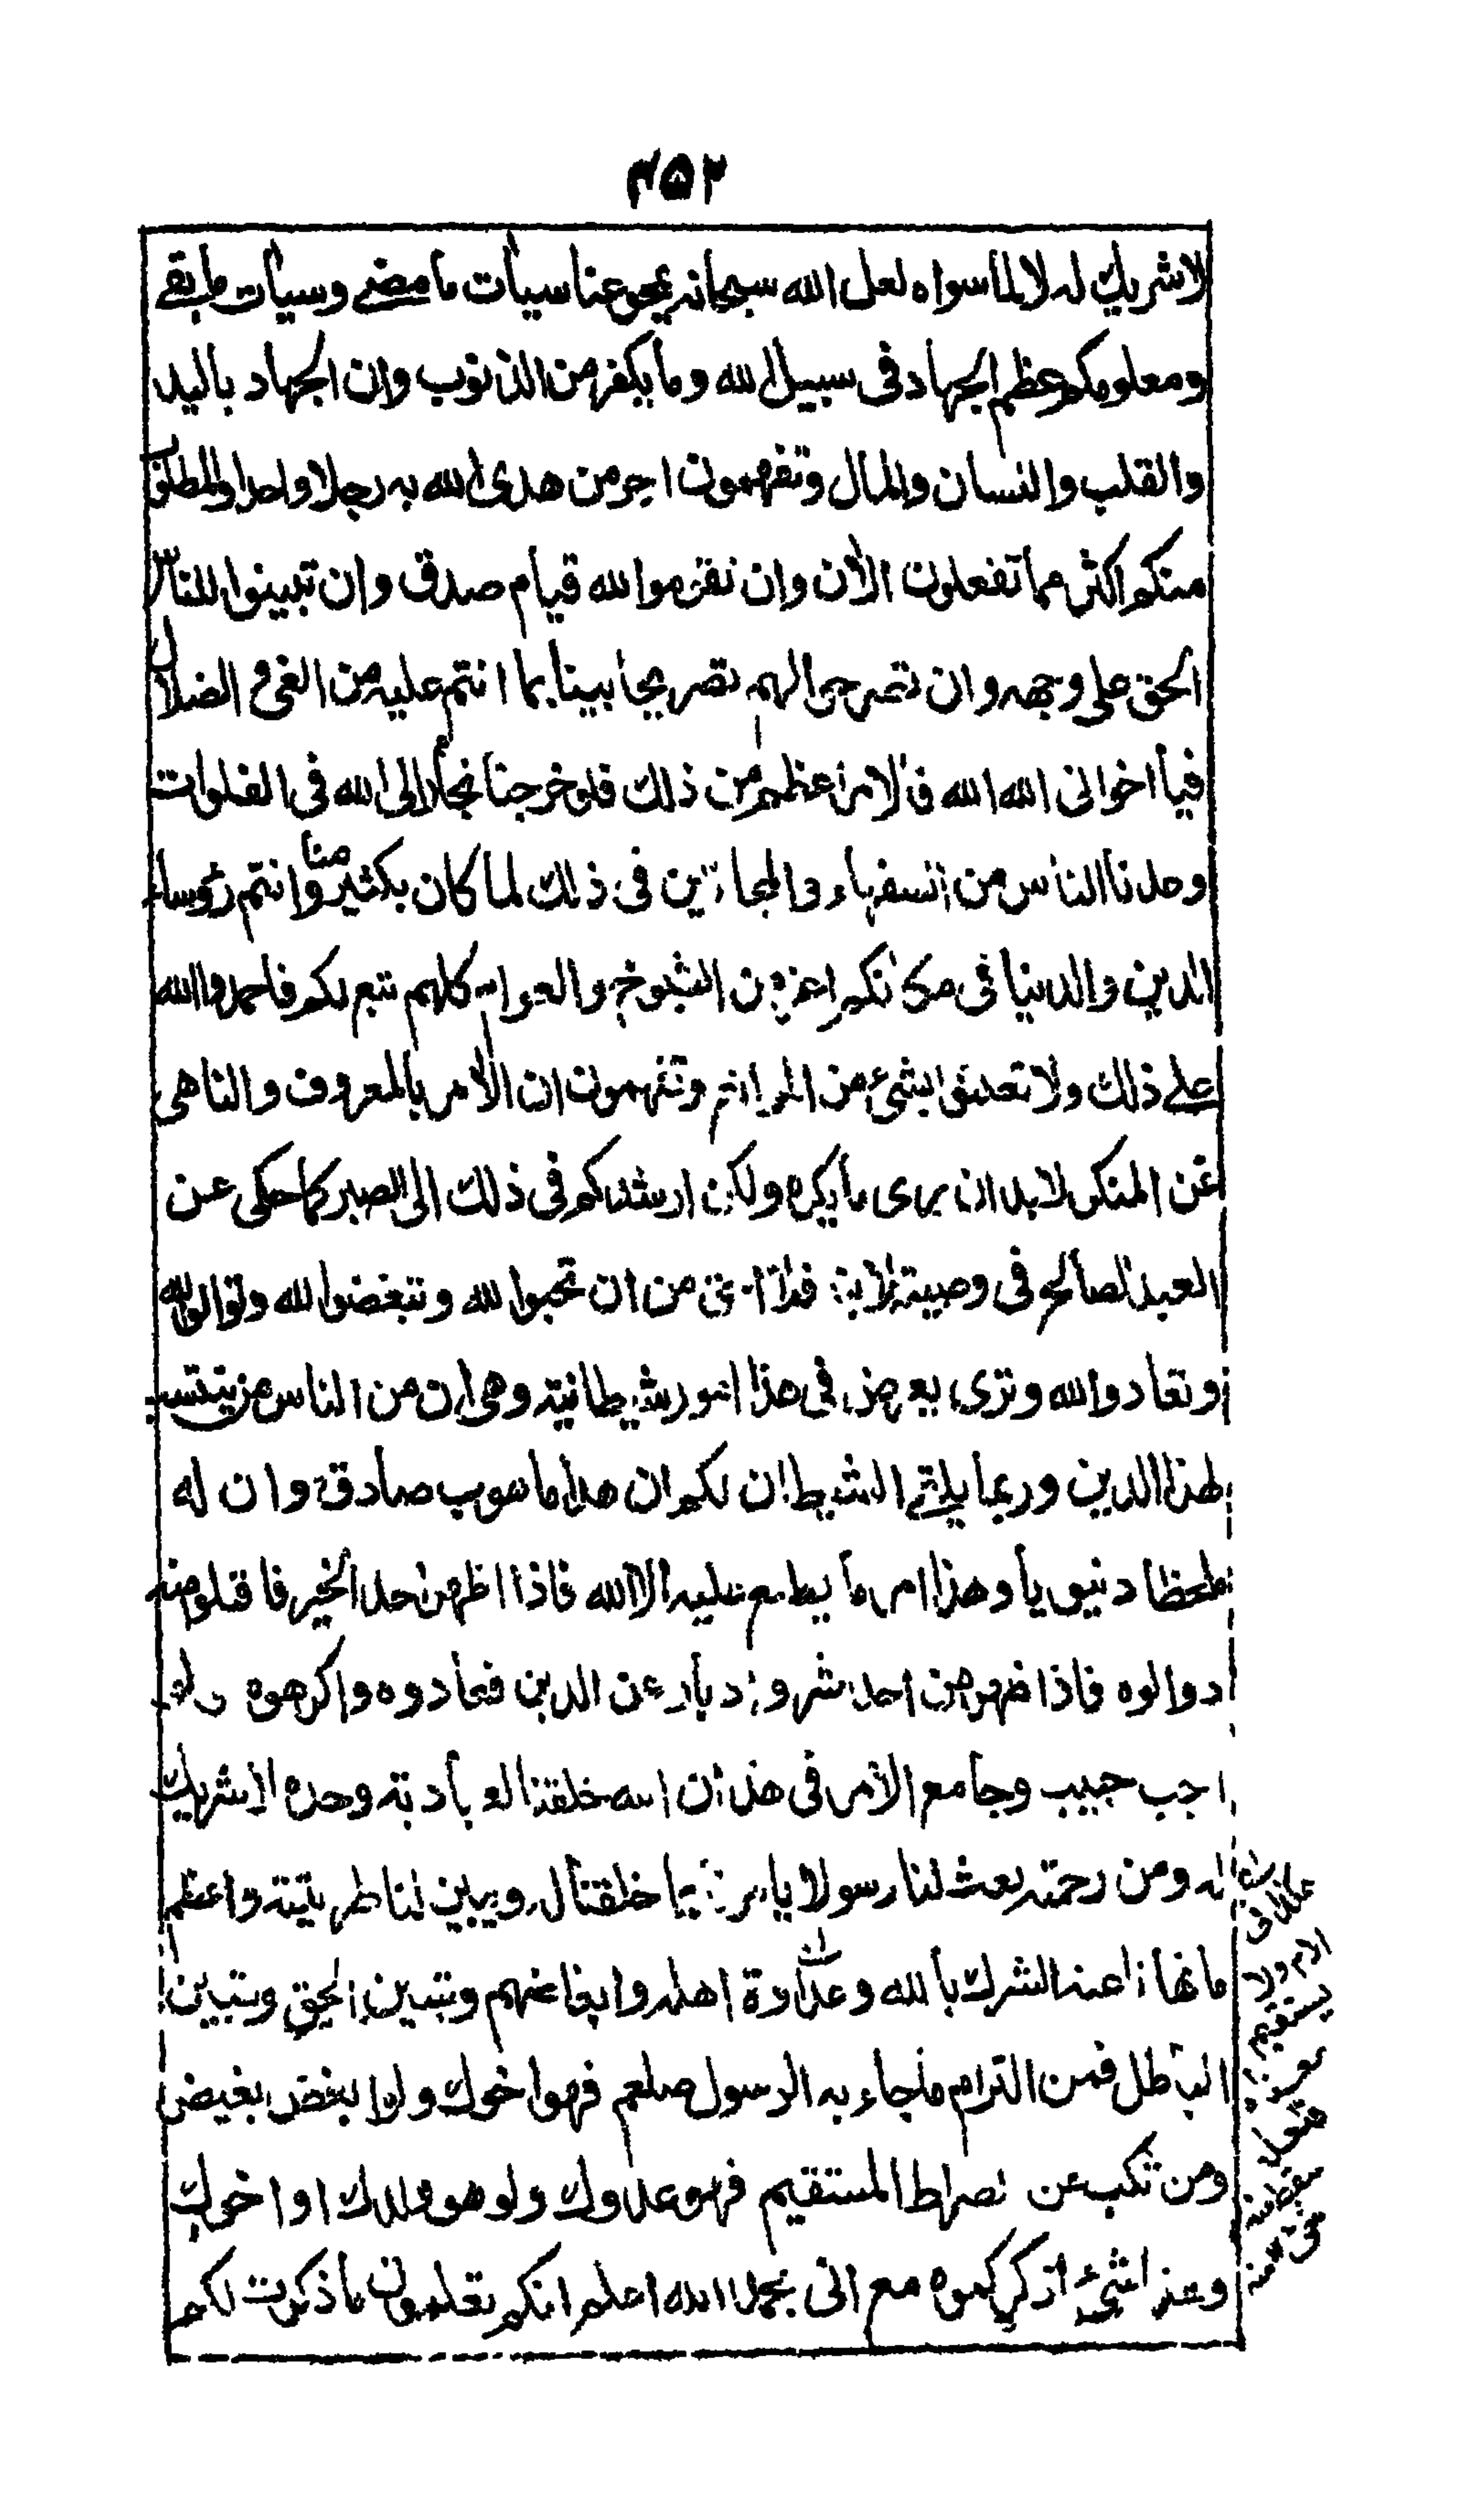 ٢٥٣
لا شريك له لا لما سواه لعل الله سبحانه يمحو عنا سيات ما مضے وسيات ما بقے
ومعلومكم عظم الجهاد فى سبيل الله وما يكفر من الذنوب وان الجهاد باليد
والقلب واللسان والمال وتفهمون اجر من هدى الله به رجلا واحدا والمطلوب
منكم اكثر مما تفعلون الآن وان تقوموا لله قيام صدق وان تبينوا للناس
الحق على وجهه وان تصرحوا لهم تصريحا بينا بما انتم عليه من الغى و الضلال
فيا اخوانى الله الله فالامر اعظم من ذلك فلو خرجنا نجار الى الله فى الفلوات
وعدنا الناس من السفهاء والمجانين فى ذلك لما كان بكثير منا وانتم رؤساء
الدين والدنيا فى مكانكم اعز من الشيوخ والعوام كلهم تبع لكم فاحمدوا الله
على ذلك ولا تعتلوا بشئ من الموانع وتفهمون ان الامر بالمعروف والناهى
عن المنكر لابد ان يرى ما يكره ولكن ارشدكم فى ذلك الى الصبر كما حكى عن
العبد الصالح فى وصيته لابنه فلا من ان تحبوا لله وتبغضوا لله وتوالوا لله
وتعادوا لله وترى يعرض فى هذا امور شيطانية وهى ان من الناس من ينتسب
لهذا الدين وربما يلقے الشيطان لكم ان هذا ما هوب صادق وان له
ملحظا دنيويا وهذا امر ما يطلع عليه الا الله فاذا اظهر احد الخير فاقبلوا منه
ووالوه فاذا ظهر من احد شر وادبار عن الدين فعادوه واكرهوه ولو
احب حبيب وجامع الامر فى هذا ان الله خلقنا لعبادته وحده لا شريك
له ومن رحمته بعث لنا رسولا يامرنا بما خلقنا له ويبين لنا طريقته واعظم
ما نهانا عنه الشرك بالله وعداوة اهله وابغاضهم وتبيين الحق وتبيين
الباطل فمن التزم ما جاء به الرسول صلعم فهو اخوك ولو ابغض بغيض
ومن نكب عن الصراط المستقيم فهو عدوك ولو هو ولدك او اخوك
وهذا شئ اذكركموه مع انى بحمد الله اعلم انكم تعلمون ما ذكرت لكم